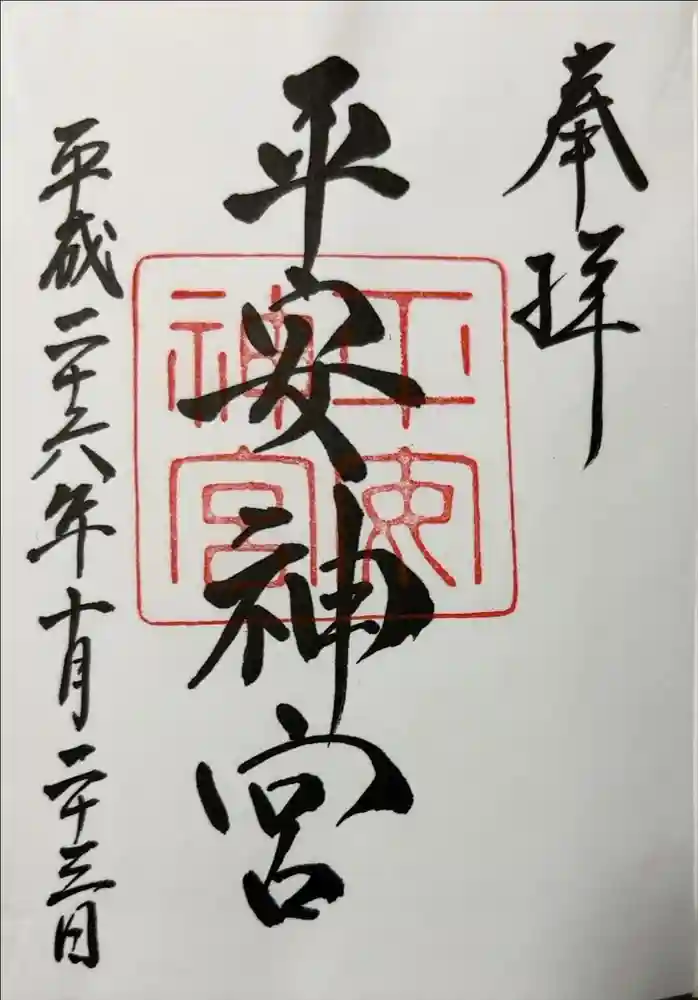 奉拝
平安神宮
平安神宮
平成二十六年十月二十三日